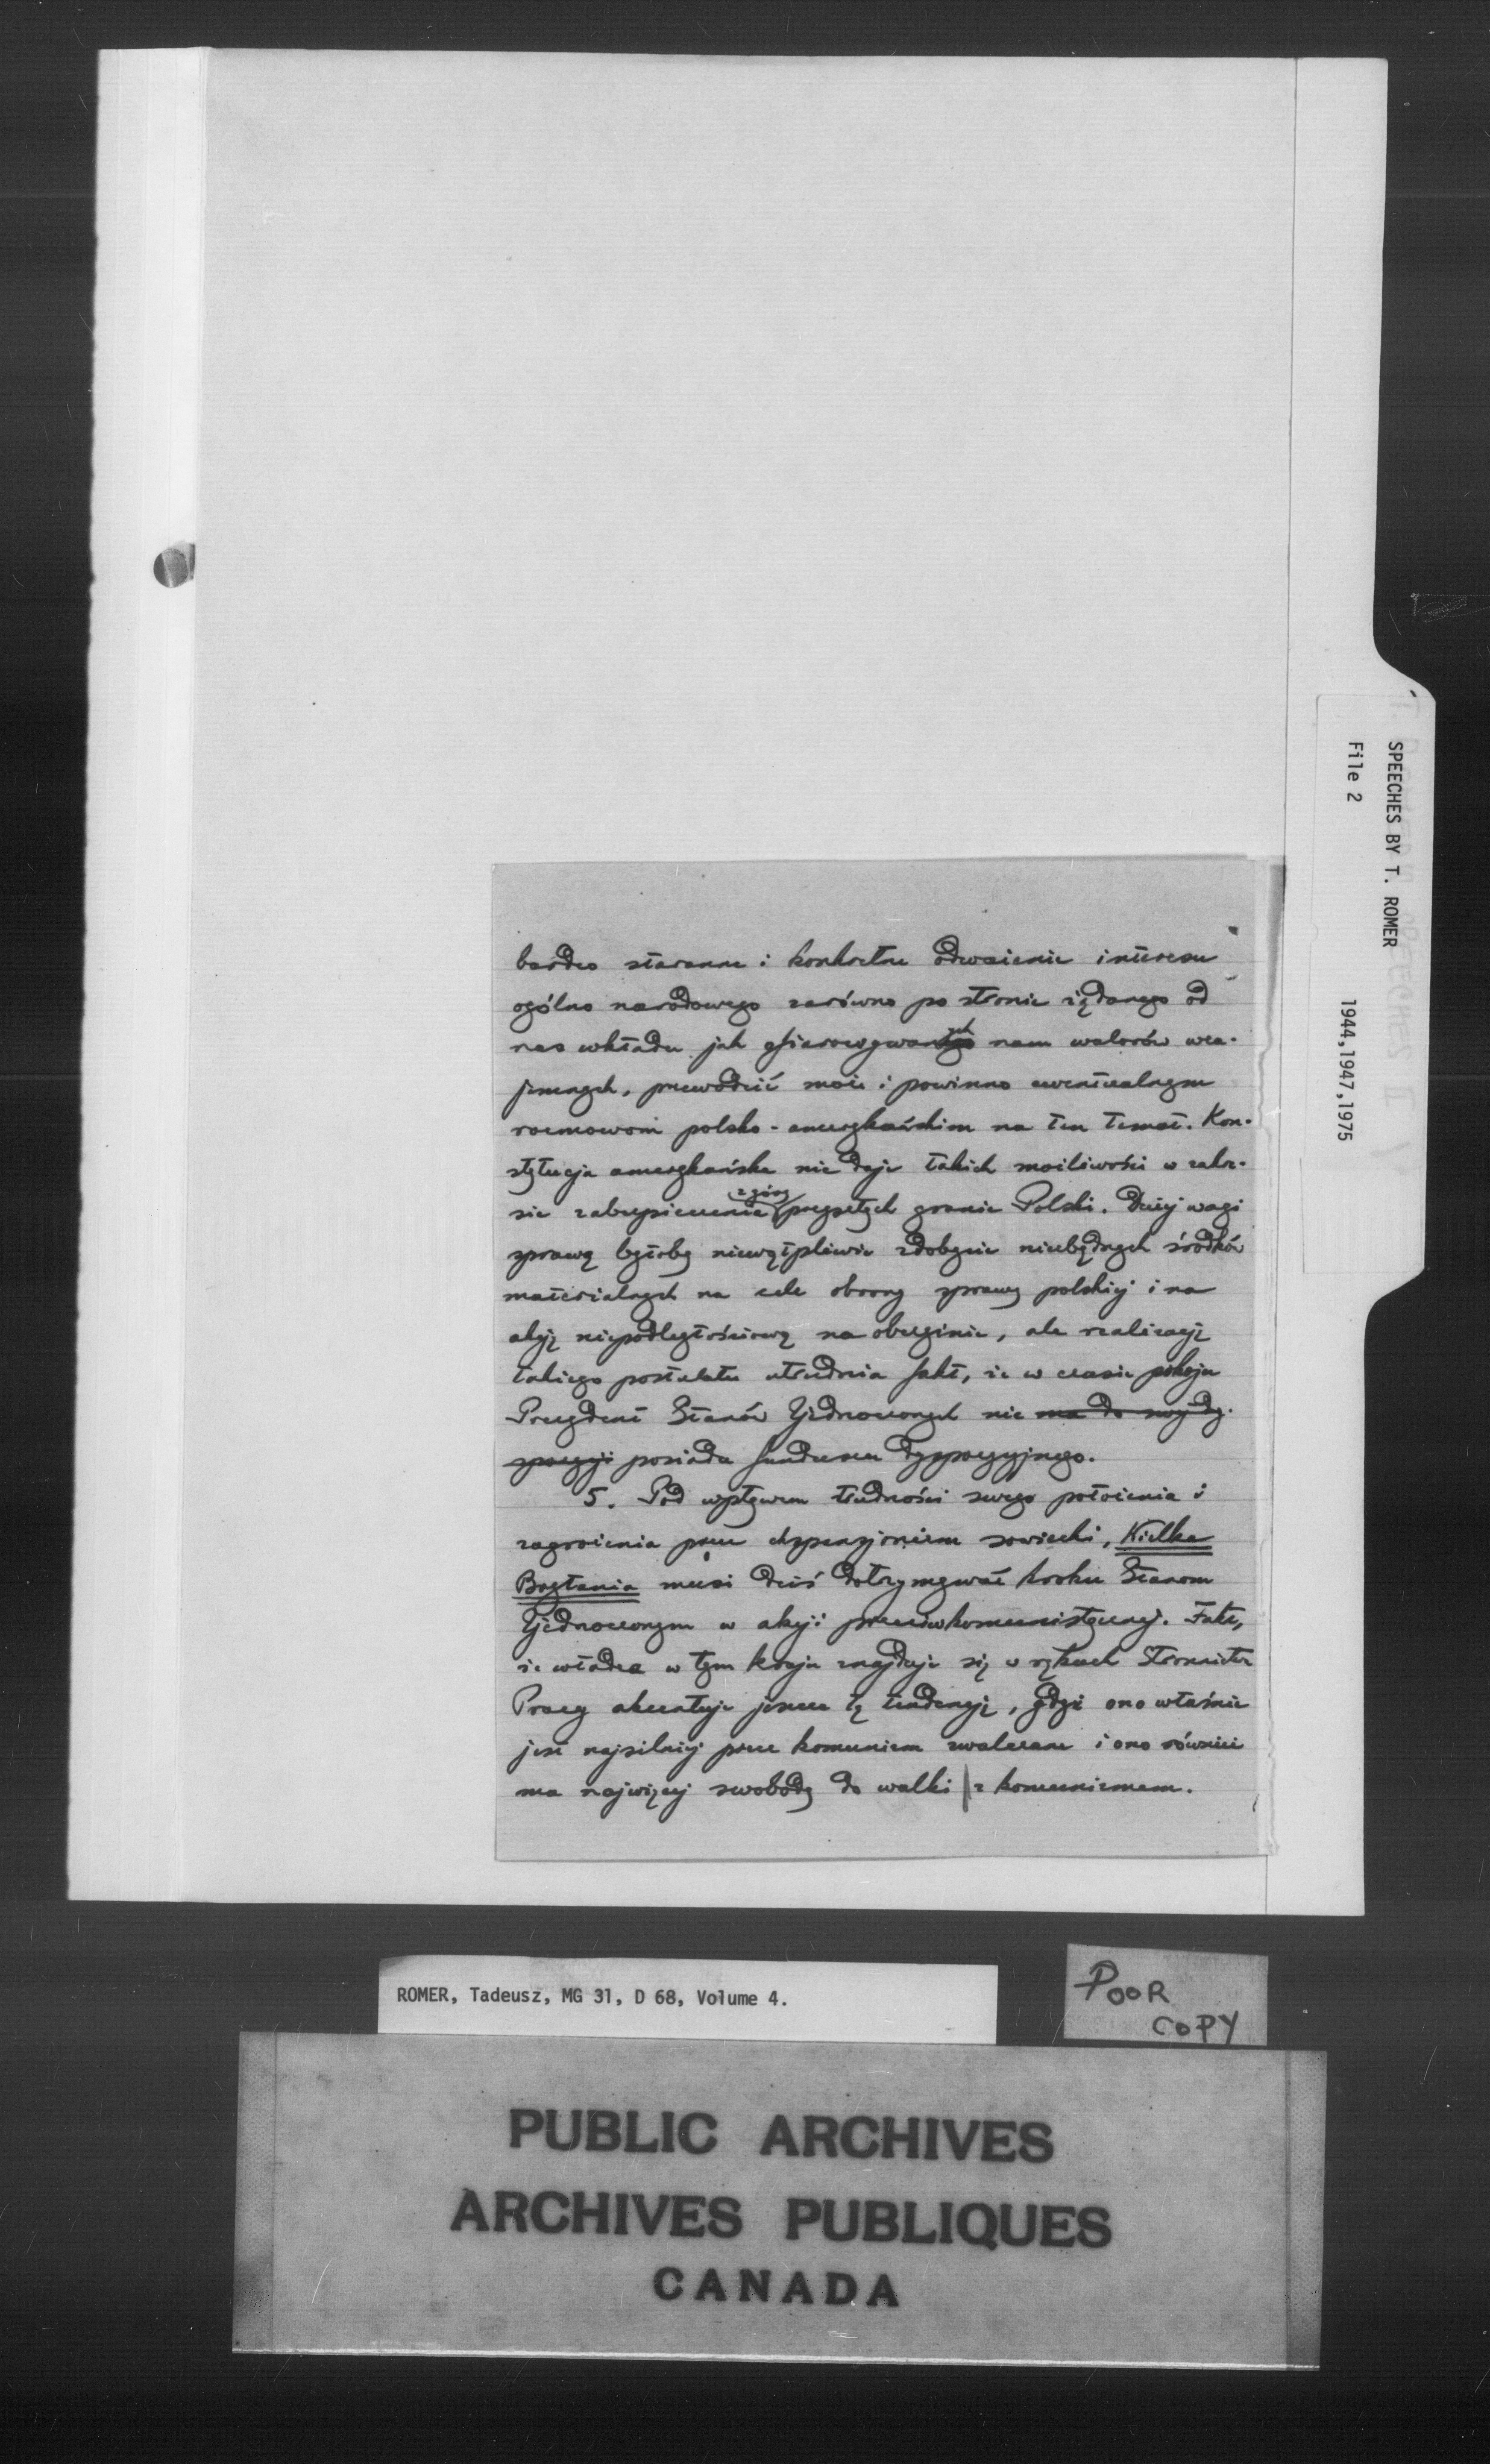 bardzo staranne i konkretne odważenie interesu
ogólno narodowego zarówno po stronie żądanego od
nas wkładu jak ofiarowywanych nam walorów wza-
jemnych, przewodzić może i powinno ewentualnym
rozmowom polsko-amerykańskim na ten temat. Kon-
stytucja amerykańska nie daje takich możliwości w zakre-
sie zabezpieczenia zgóry przyszłych granic Polski. Dużej wagi
sprawą byłoby niewątpliwie zdobycie niezbędnych środków
materialnych na cele obrony sprawy polskiej i na
akcję niepodległościową na obczyźnie, ale realizację
takiego postulatu utrudnia fakt, że w czasie pokoju
Prezydent Stanów Zjednoczonych nie ma do swej dy-
spozycji posiada funduszu dyspozycyjnego.
5. Pod wpływem trudności swego położenia i
zagrożenia przez ekspansjonizm sowiecki, Wielka
Brytania musi dziś dotrzymywać kroku Stanom
Zjednoczonym w akcji przeciwkomunistycznej. Fakt,
że władza w tym kraju znajduje się w rękach Stronnictwa
Pracy akcentuje jeszcze tę tendencję, gdyż ono właśnie
jest najsilniej przez komunizm zwalczane i ono również
ma najwięcej swobody do walki z komunizmem.
SPEECHES BY T. ROMER
File 2 1944,1947,1975
ROMER, Tadeusz, MG 31, D 68, Volume 4.
POOR
COPY
PUBLIC ARCHIVES
ARCHIVES PUBLIQUES
CANADA